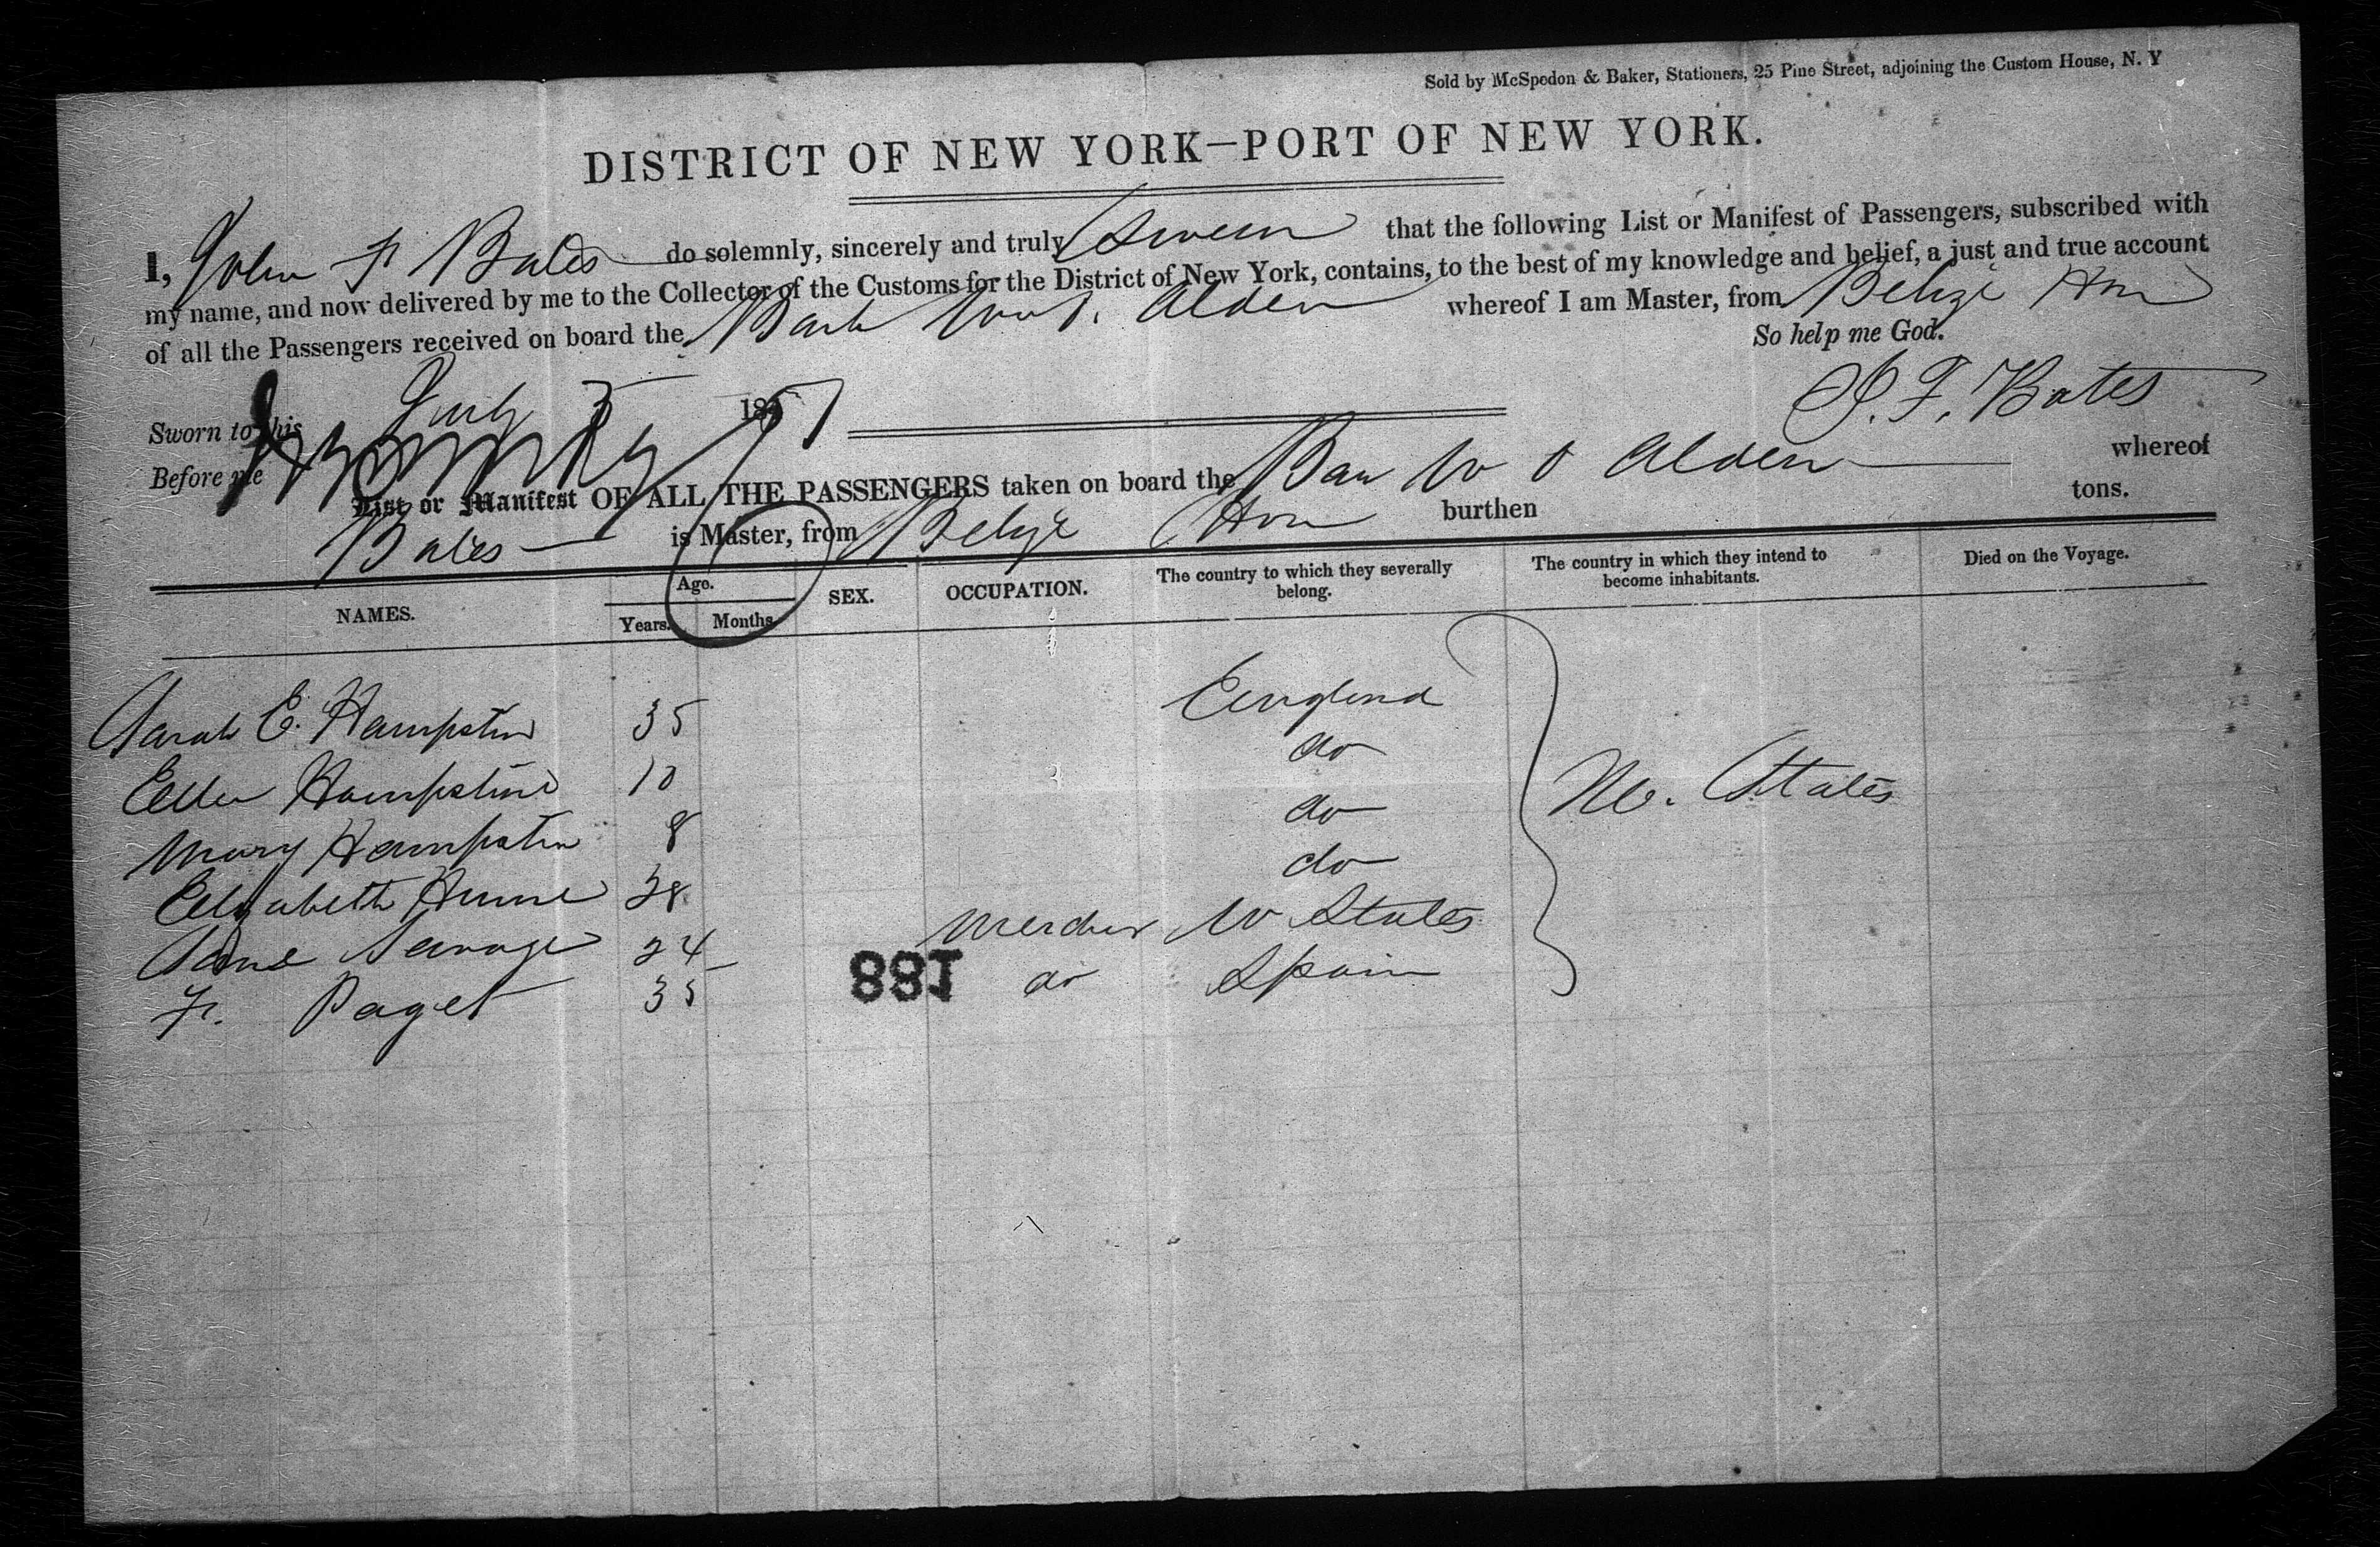 Sold by McSpedon & Baker, Stationers, 25 Pine Street, adjoining the Custom House, N. Y
DISTRICT OF NEW YORK—PORT OF NEW YORK.
I, John F Bates do solemnly, sincerely and truly Swear that the following List or Manifest of Passengers, subscribed with
my name, and now delivered by me to the Collector of the Customs for the District of New York, contains, to the best of my knowledge and belief, a just and true account
of all the Passengers received on board the Bark Alden whereof I am Master, from Belize Hon
So help me God.
Sworn to this July 5 1857
J. F. Bates
Before me
List or Manifest OF ALL THE PASSENGERS taken on board the Bark W Alden whereof
Bates is Master, from Belize Hon burthen tons.
NAMES. Age. Years. Months. SEX. OCCUPATION. The country to which they severally belong. The country in which they intend to become inhabitants. Died on the Voyage.
Sarah E. Hampston 35 England
Ellen Hampston 10 do
Mary Hampston 8 do U. States
Elizabeth Hume 38 do
Savage 24 U States
F. Paget 35 do Spain
188